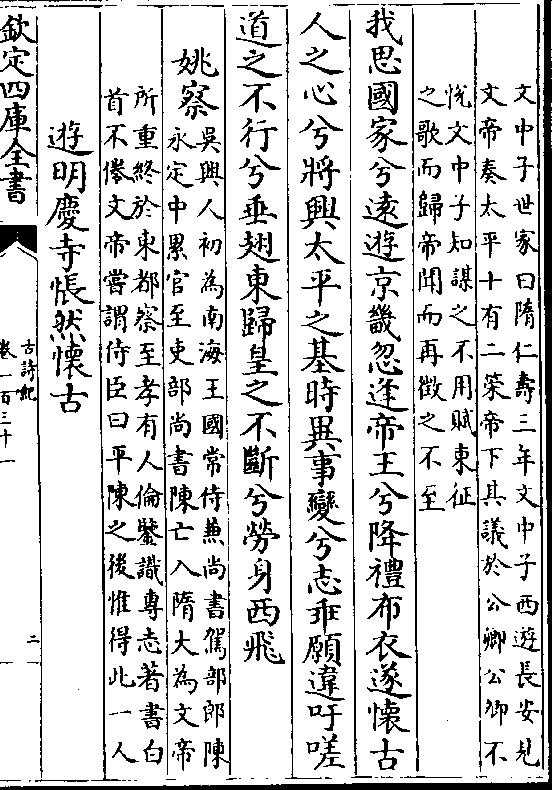 文中子世家曰隋仁壽三年文中子西遊長安見
文帝奏太平十有二策帝下其議於公卿公卿不
悅文中子知謀之不用賦東征
之歌而歸帝聞而再徵之不至
我思國家兮遠遊京畿忽逢帝王兮降禮布衣遂懷古
人之心兮將興太平之基時異事變兮志乖願違吁嗟
道之不行兮垂翅東歸皇之不斷兮勞身西飛
姚察
吳興人初為南海王國常侍兼尚書駕部郎陳
永定中累官至吏部尚書陳亡入隋大為文帝
所重終於東都察至孝有人倫鑒識專志著書白
首不倦文帝嘗謂侍臣曰平陳之後惟得此一人
遊明慶寺悵然懷古
欽定四庫全書
古詩紀
卷一百三十一
二